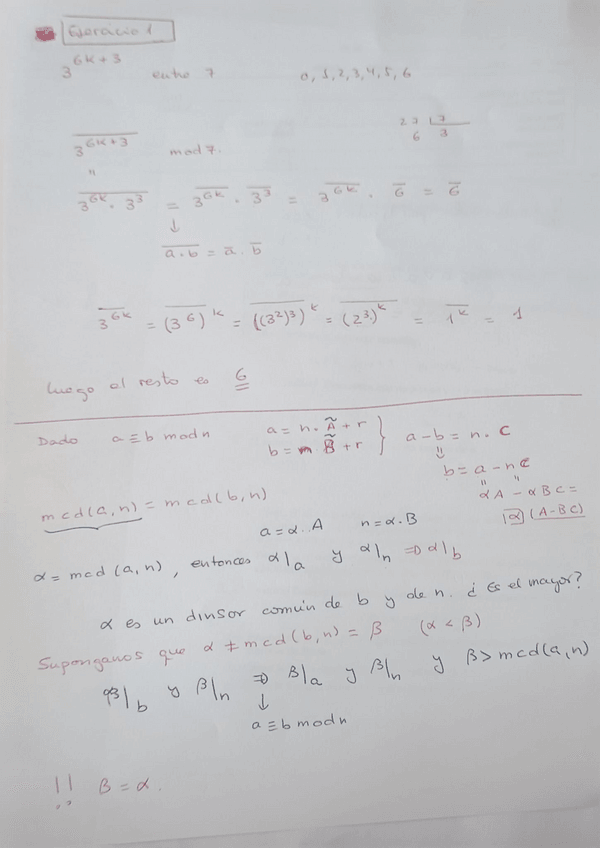 Ejercicio 1
3^{6k+3} entre 7 0, 1, 2, 3, 4, 5, 6
27 |7
6 3
\overline{3^{6k+3}} mod 7.
"
\overline{3^{6k} \cdot 3^3} = \overline{3^{6k}} \cdot \overline{3^3} = \overline{3^{6k}} \cdot \overline{6} = \overline{6}
↓
\overline{a \cdot b} = \overline{a} \cdot \overline{b}
\overline{3^{6k}} = \overline{(3^6)}^k = \overline{((3^2)^3)}^k = \overline{(2^3)^k} = \overline{1^k} = 1
Luego el resto es 6
Dado a ≡ b mod n a = n · Ã + r } a - b = n · C
b = n B̃ + r ⇓
b = a - nC
" "
αA - αBC =
α (A - BC)
mcd(a, n) = mcd(b, n)
a = α · A n = α · B
α = mcd (a, n), entonces α|a y α|n ⇒ α|b
α es un divisor común de b y de n. ¿Es el mayor?
Supongamos que α ≠ mcd(b, n) = β (α < β)
β|b y β|n ⇒ β|a y β|n y β > mcd(a, n)
↓
a ≡ b mod n
!! β = α.